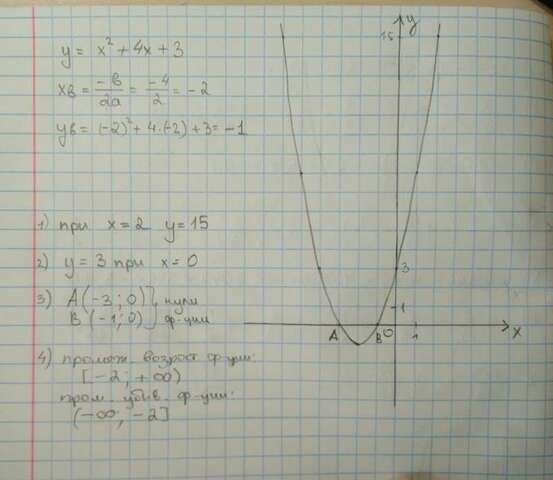 y = x² + 4x + 3
xв = -в/2a = -4/2 = -2
yв = (-2)² + 4·(-2) + 3 = -1
1) при x = 2 y = 15
2) y = 3 при x = 0
3) A(-3; 0) } нули
B(-1; 0) } ф-ции
4) промеж. возраст ф-ции:
[-2; +∞)
пром. убыв. ф-ции:
(-∞; -2]
y
15
3
1
A B O 1 x